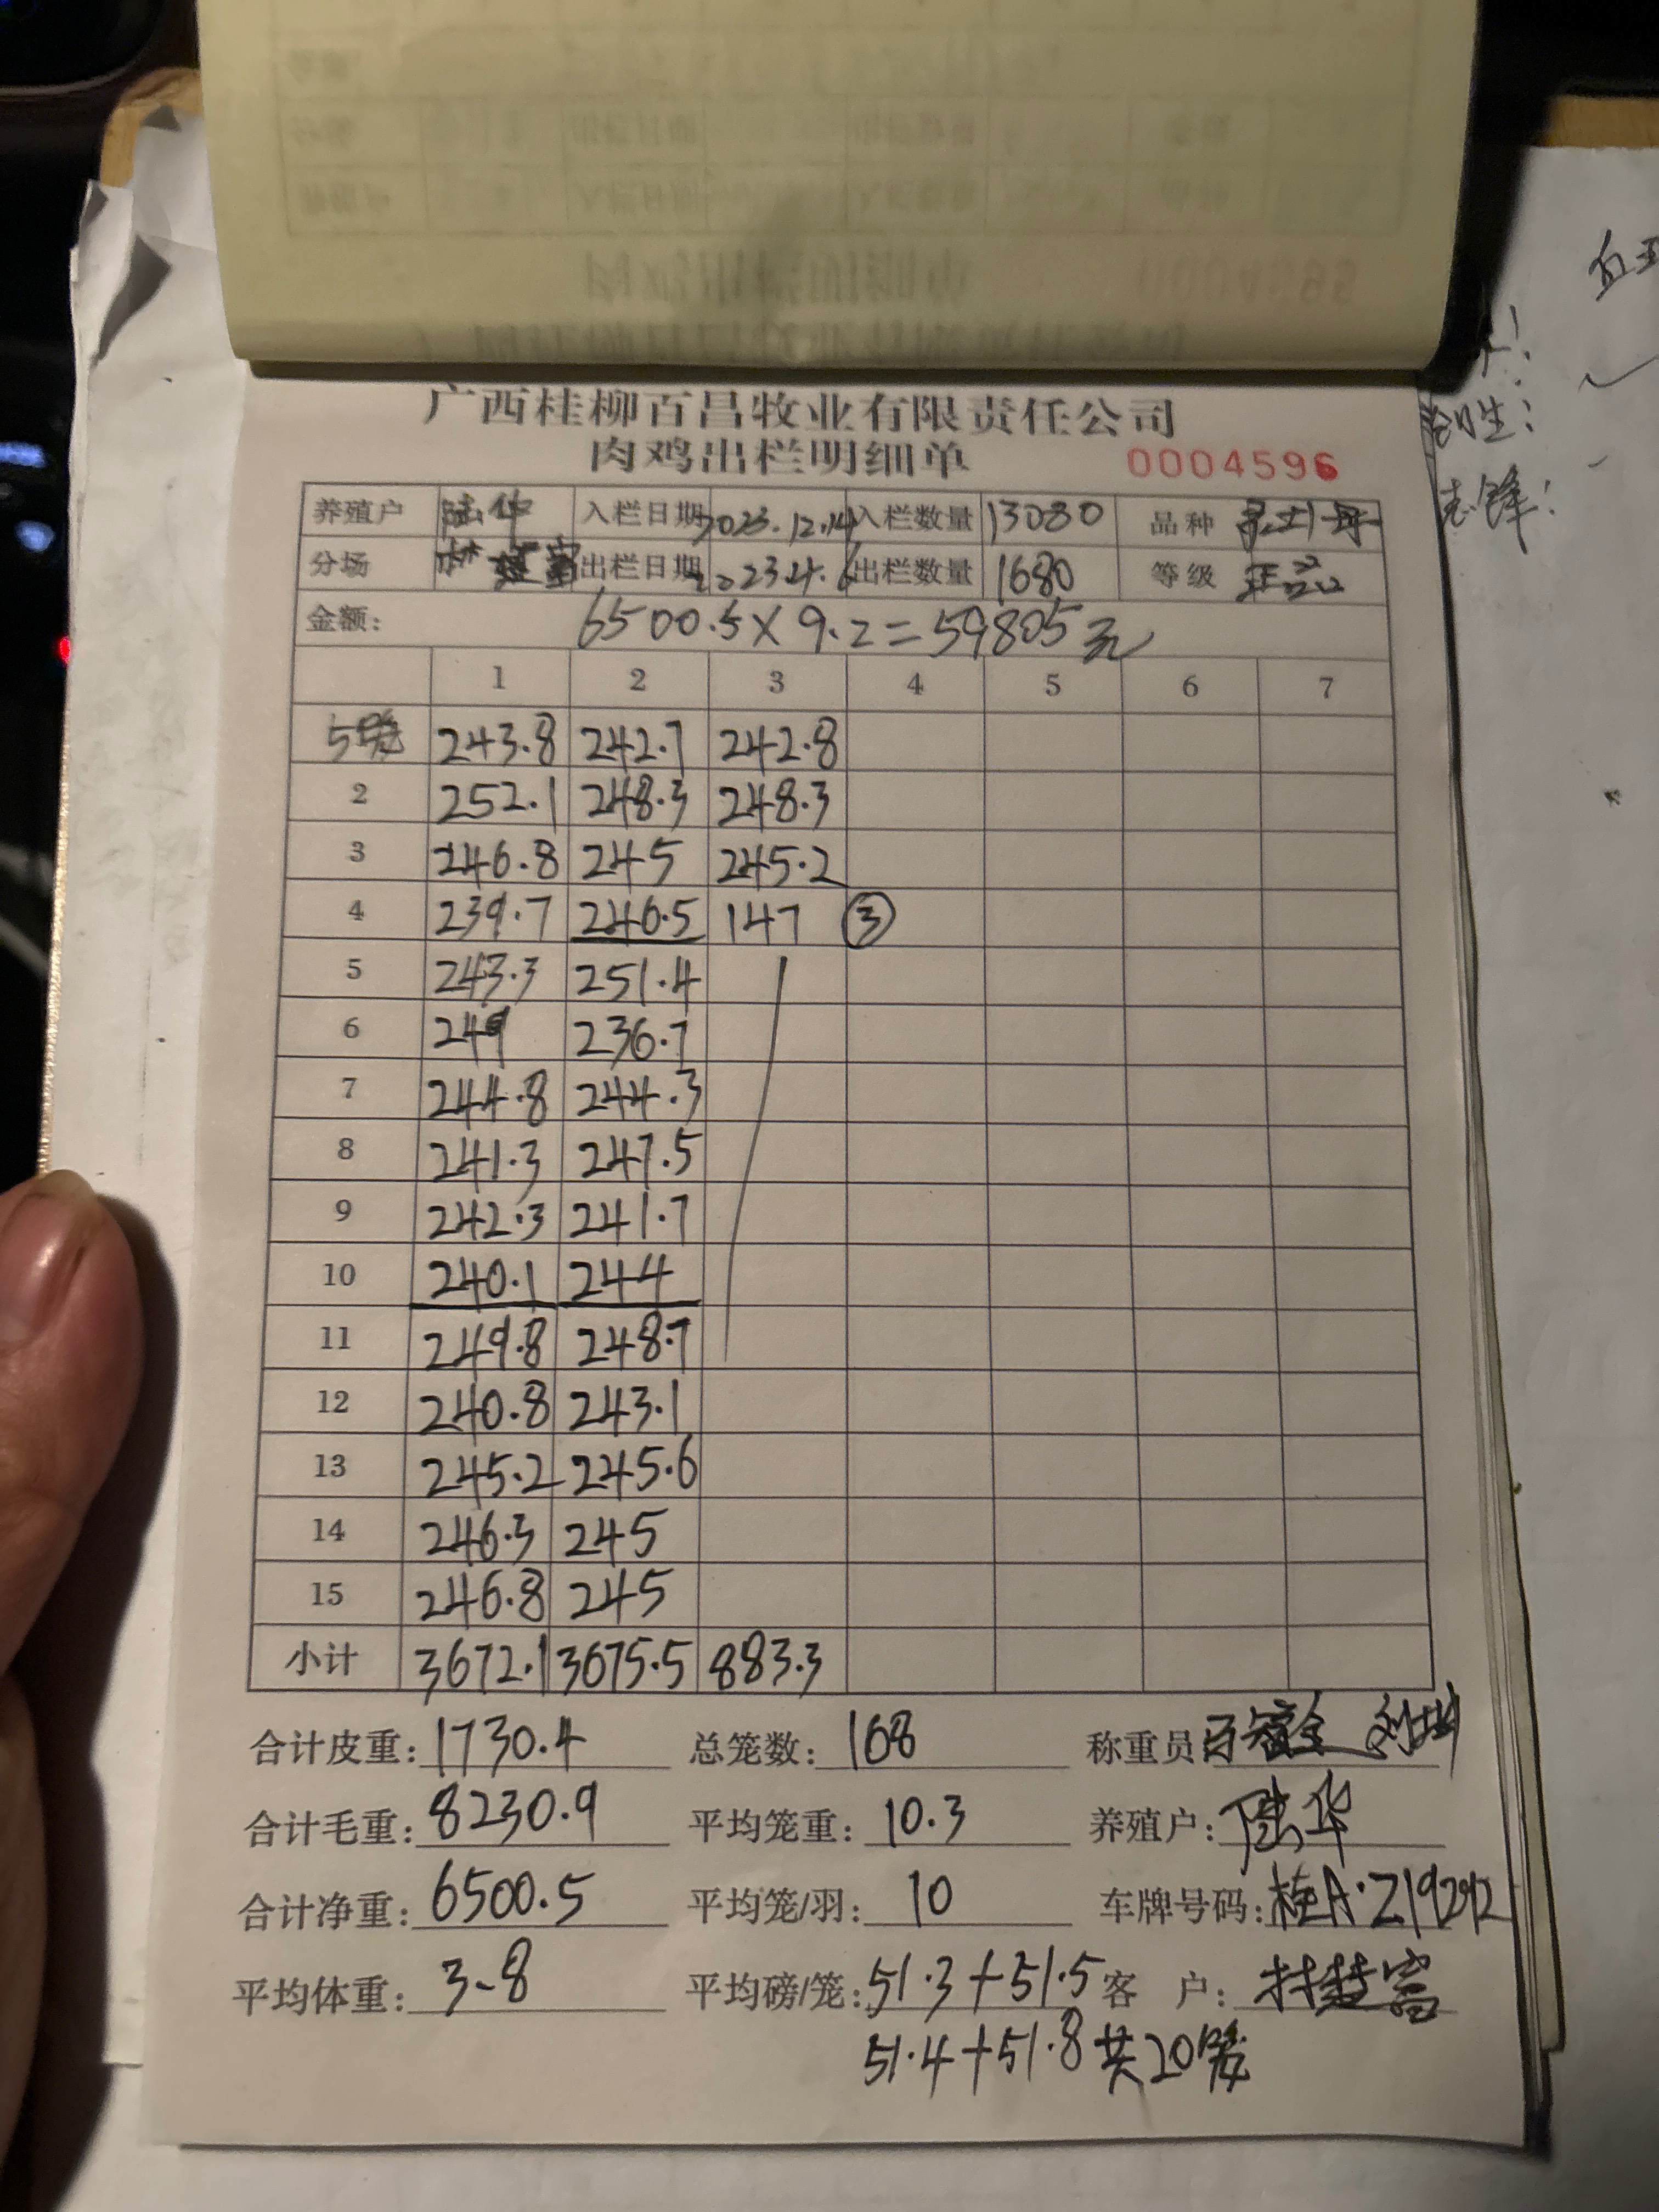 广西桂柳百昌牧业有限责任公司
肉鸡出栏明细单 0004596
养殖户 陆华 入栏日期 2023.12.14 入栏数量 13080 品种
分场 出栏日期 2023.4.6 出栏数量 1680 等级 正品
金额: 6500.5×9.2=59805元
1 2 3 4 5 6 7
5笼 243.8 242.7 242.8
2 252.1 248.3 248.3
3 246.8 245 245.2
4 239.7 246.5 147 ③
5 243.3 251.4
6 249 236.7
7 244.8 244.3
8 241.3 247.5
9 242.3 241.7
10 240.1 244
11 249.8 248.7
12 240.8 243.1
13 245.2 245.6
14 246.3 245
15 246.8 245
小计 3672.1 3675.5 883.3
合计皮重: 1730.4 总笼数: 168 称重员
合计毛重: 8230.9 平均笼重: 10.3 养殖户: 陆华
合计净重: 6500.5 平均笼/羽: 10 车牌号码: 桂A·Z19292
平均体重: 3-8 平均磅/笼: 51.3+51.5 客 户:
51.4+51.8 共20笼